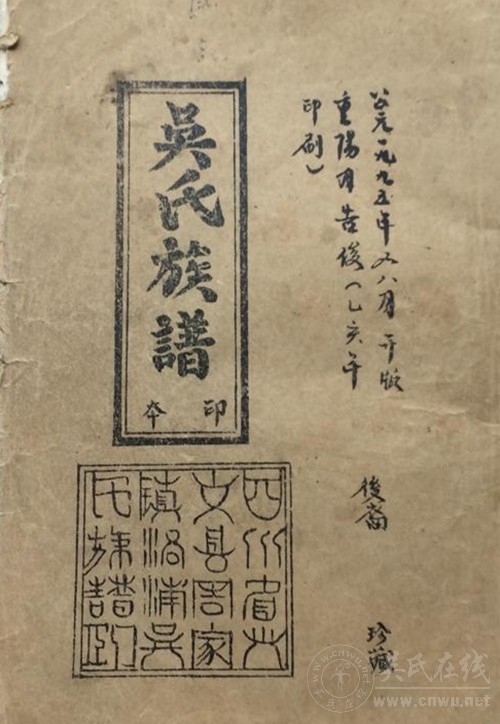 公元一九九五年又八月开版
重陽月告竣（乙亥年
印刷）
吳氏族譜
印本
後裔 珍藏
四川省兴
文县周家
鎮洛浦吳
氏族譜印
吴氏在线
www.cnwu.net